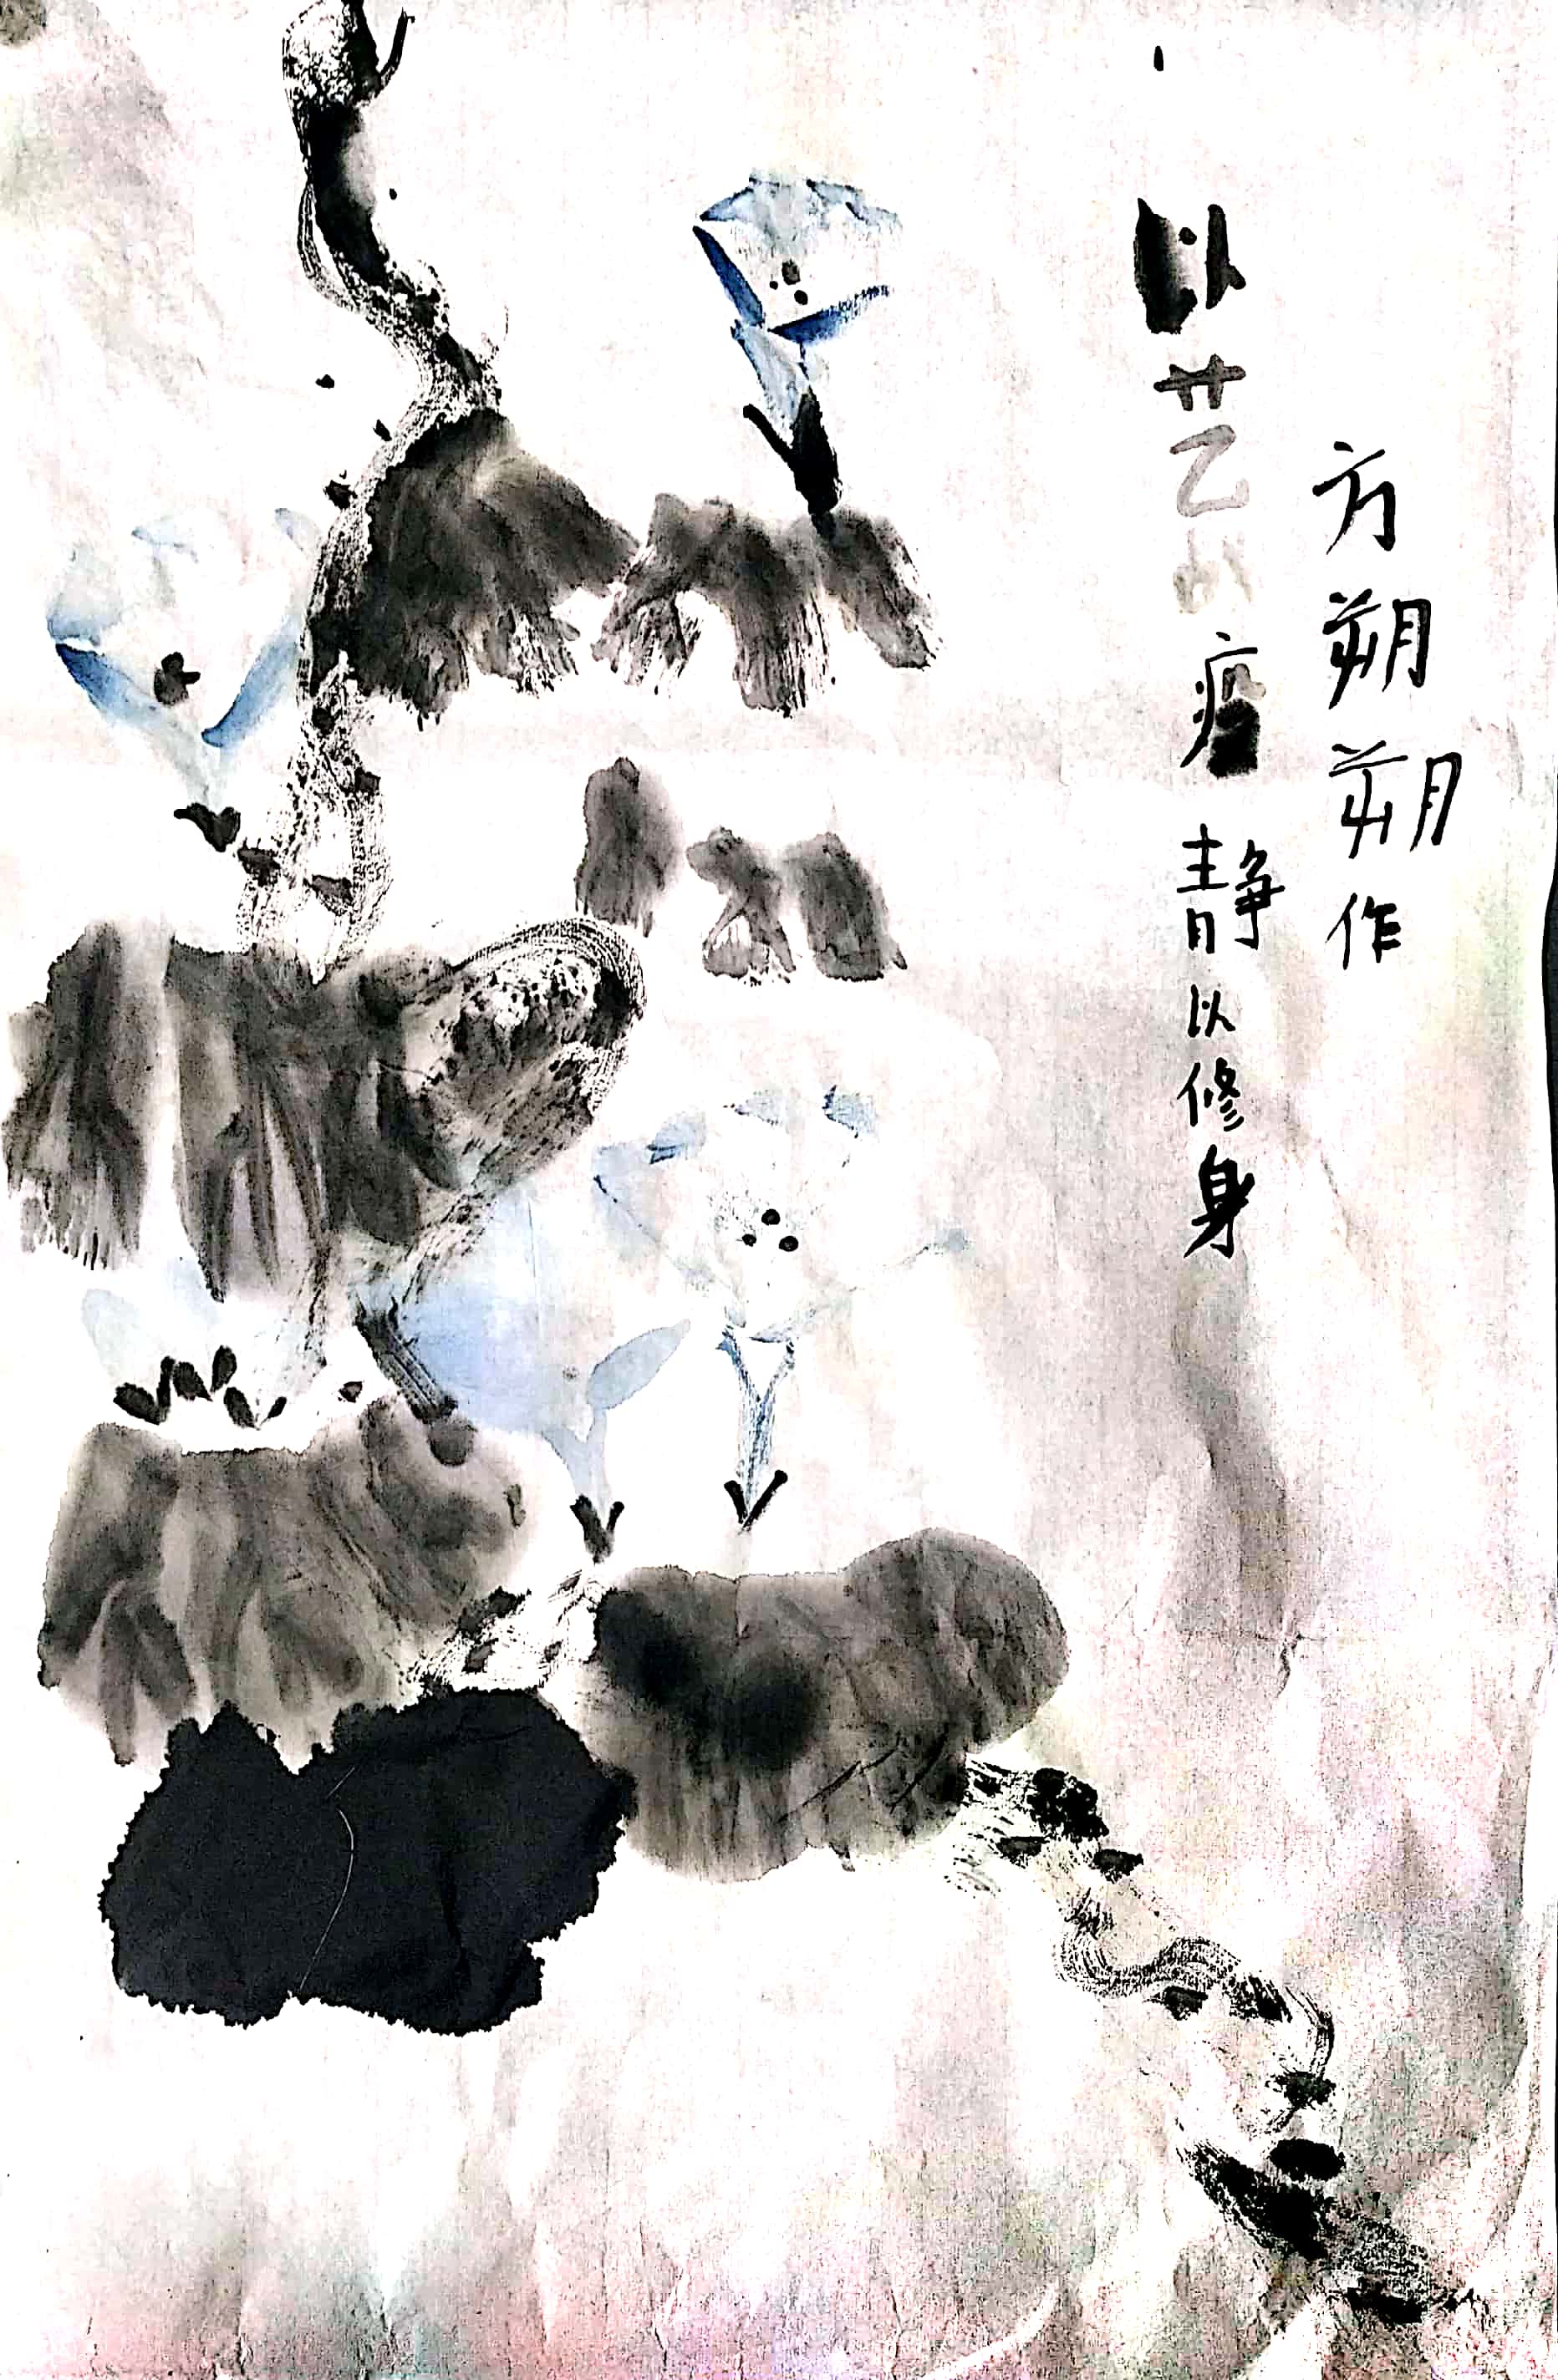 以艺疫静以修身
方朔朔作